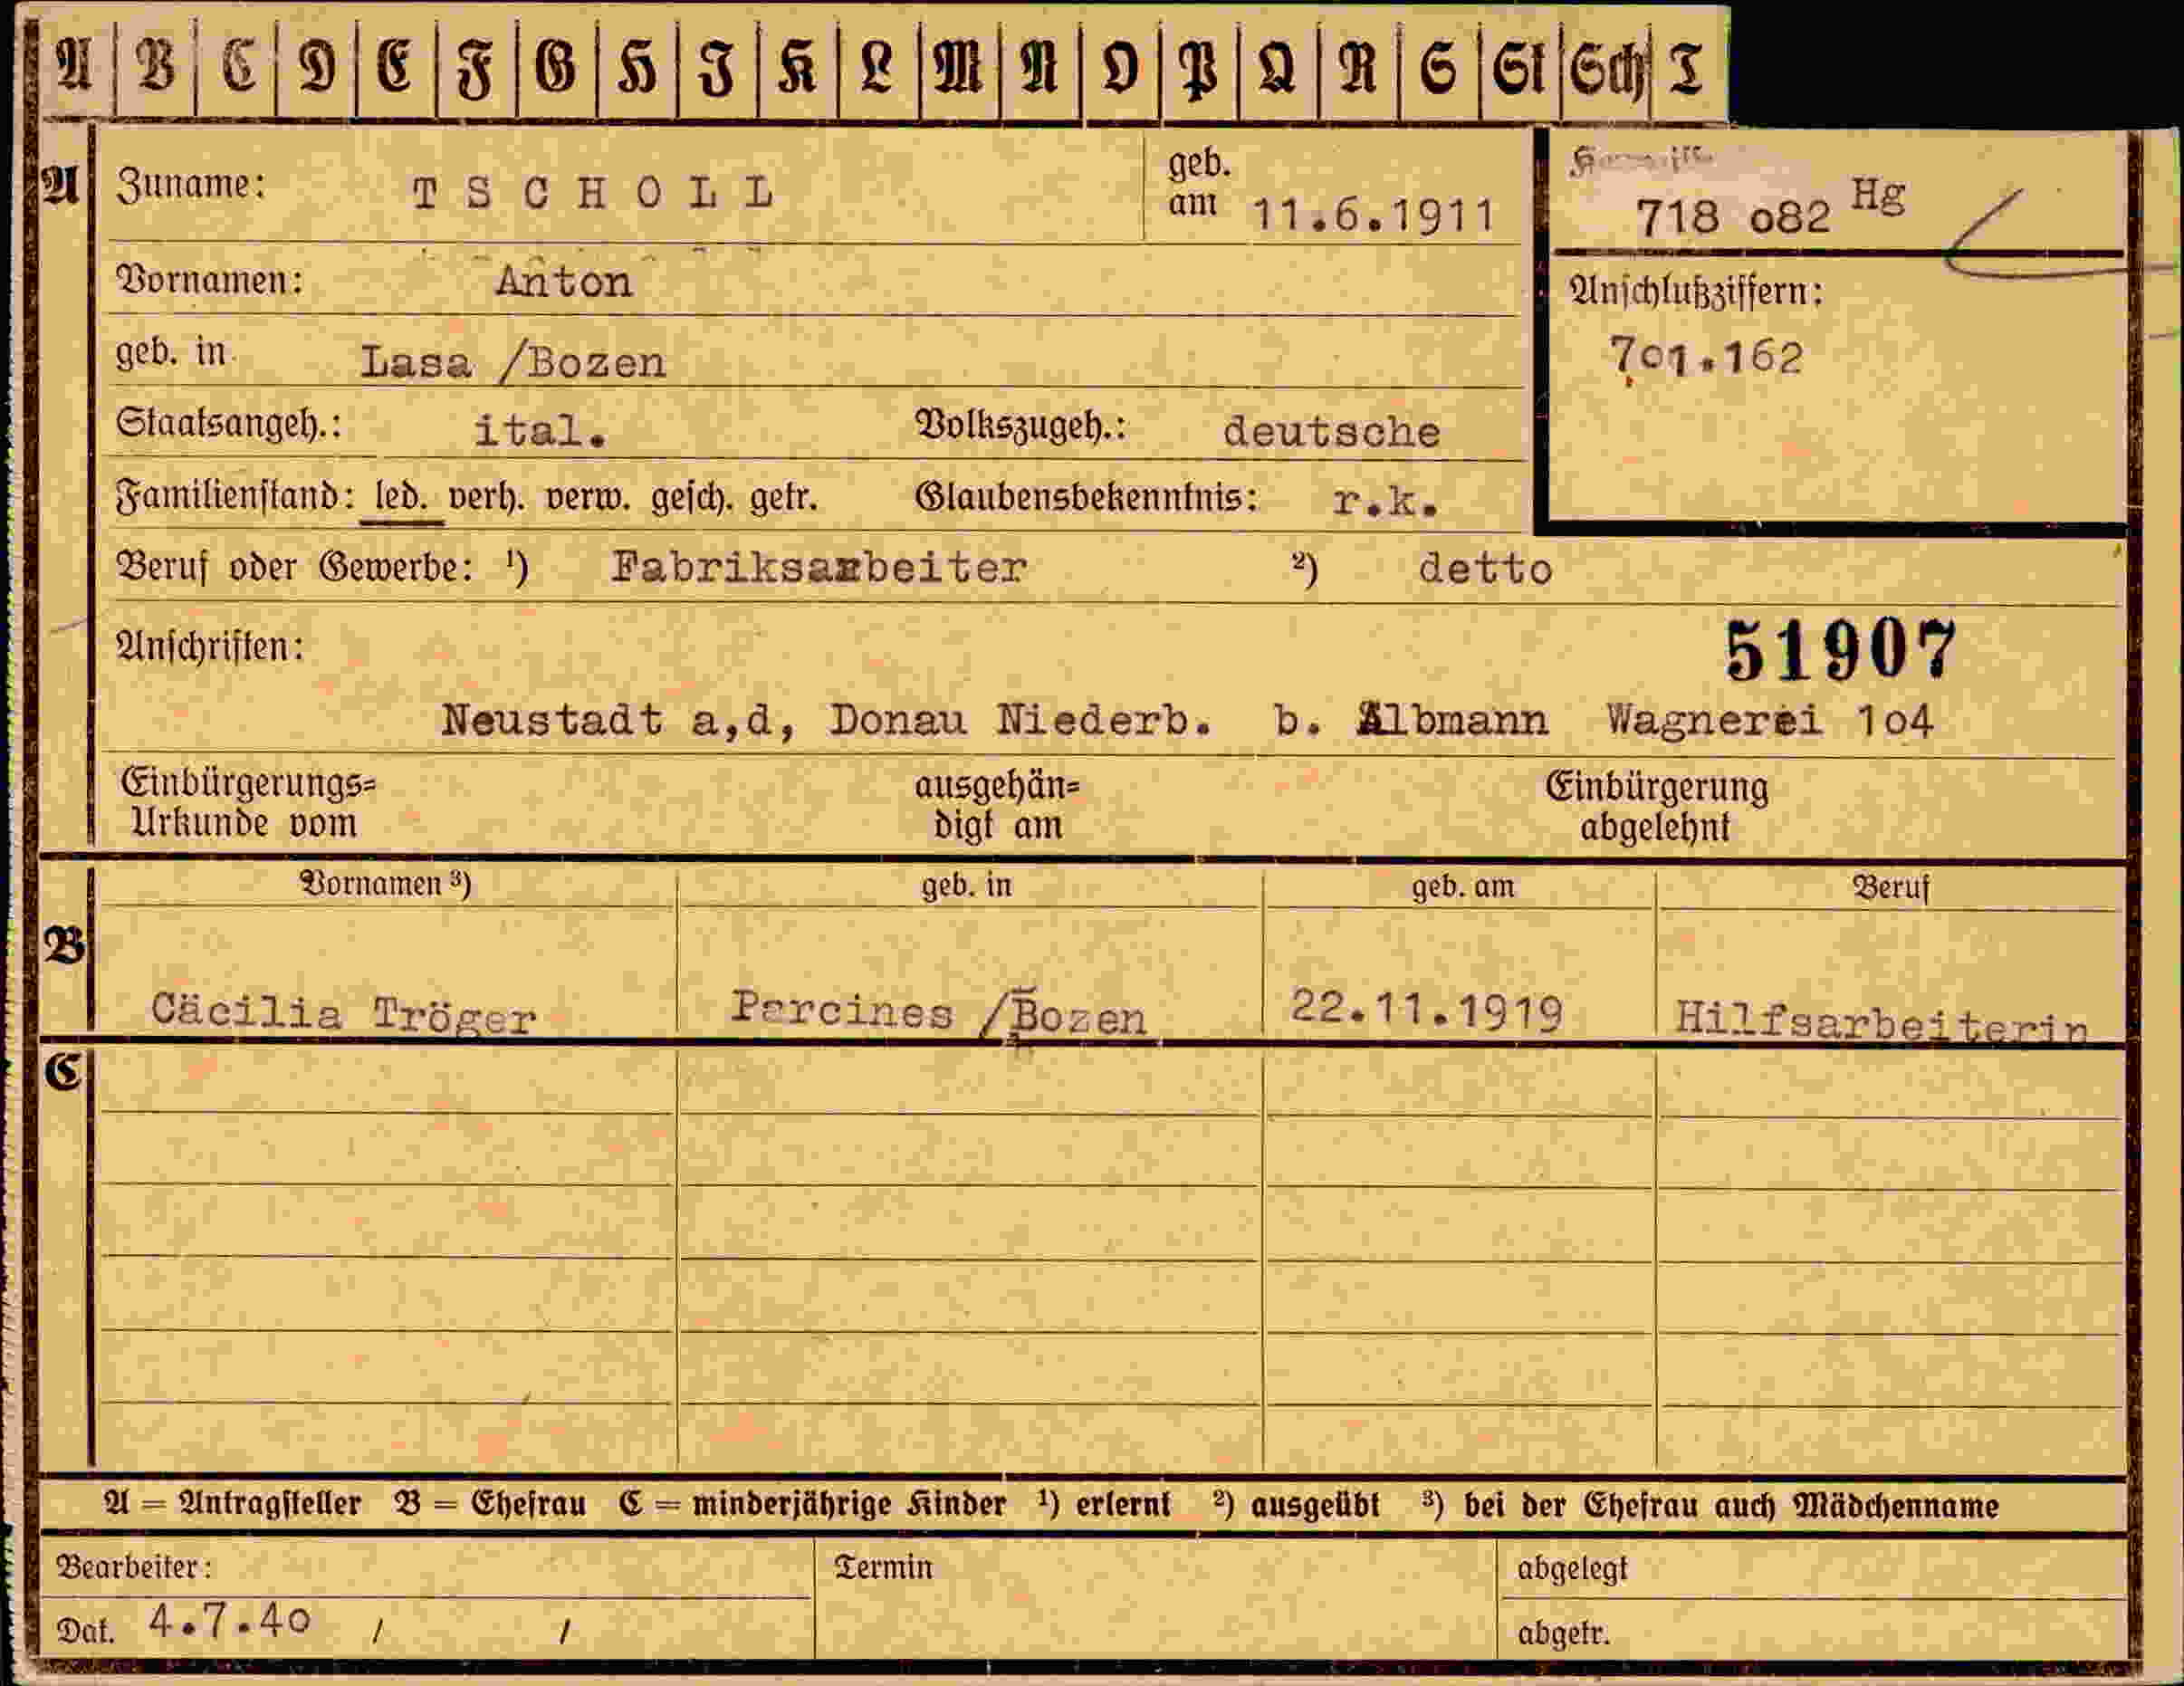 A B C D E F G H I K L M N O P Q R S St Sch T
A Zuname: TSCHOLL geb. am 11.6.1911
718 o82 Hg
Vornamen: Anton
Anschlußziffern:
701.162
geb. in Lasa /Bozen
Staatsangeh.: ital. Volkszugeh.: deutsche
Familienstand: led. verh. verw. gesch. getr. Glaubensbekenntnis: r.k.
Beruf oder Gewerbe: ¹) Fabriksarbeiter ²) detto
Anschriften: 51907
Neustadt a,d, Donau Niederb. b. Albmann Wagnerei 1o4
Einbürgerungs= ausgehän= Einbürgerung
Urkunde vom digt am abgelehnt
Vornamen ³) geb. in geb. am Beruf
B
Cäcilia Tröger Parcines /Bozen 22.11.1919 Hilfsarbeiterin
C
A = Antragsteller B = Ehefrau C = minderjährige Kinder ¹) erlernt ²) ausgeübt ³) bei der Ehefrau auch Mädchenname
Bearbeiter: Termin abgelegt
Dat. 4.7.4o / / abgetr.